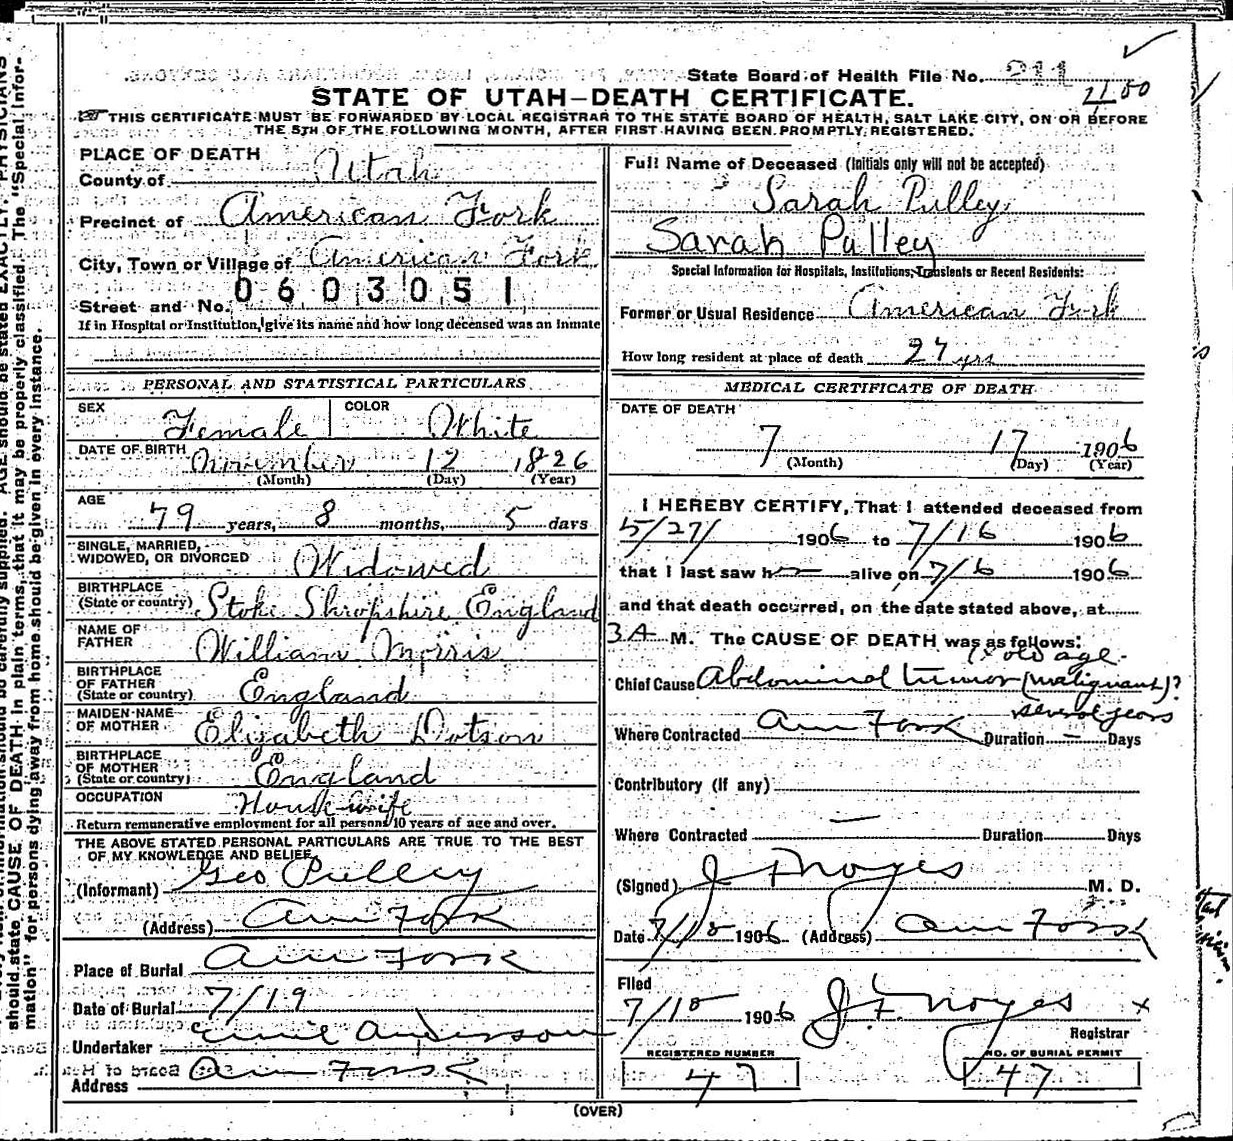 State Board of Health File No. 211
2100
STATE OF UTAH—DEATH CERTIFICATE.
THIS CERTIFICATE MUST BE FORWARDED BY LOCAL REGISTRAR TO THE STATE BOARD OF HEALTH, SALT LAKE CITY, ON OR BEFORE
THE 5TH OF THE FOLLOWING MONTH, AFTER FIRST HAVING BEEN PROMPTLY REGISTERED.
PLACE OF DEATH
County of Utah
Precinct of American Fork
City, Town or Village of American Fork
0603051
Street and No.
If in Hospital or Institution, give its name and how long deceased was an inmate
PERSONAL AND STATISTICAL PARTICULARS
SEX Female COLOR White
DATE OF BIRTH November 12 1826
(Month) (Day) (Year)
AGE
79 years, 8 months, 5 days
SINGLE, MARRIED,
WIDOWED, OR DIVORCED Widowed
BIRTHPLACE
(State or country) Stoke Shropshire England
NAME OF
FATHER William Morris
BIRTHPLACE
OF FATHER
(State or country) England
MAIDEN NAME
OF MOTHER Elizabeth Dotson
BIRTHPLACE
OF MOTHER
(State or country) England
OCCUPATION House wife
Return remunerative employment for all persons 10 years of age and over.
THE ABOVE STATED PERSONAL PARTICULARS ARE TRUE TO THE BEST
OF MY KNOWLEDGE AND BELIEF
(Informant) Geo Pulley
(Address) Am Fork
Place of Burial Am Fork
Date of Burial 7/19
Undertaker Anderson
Address Am Fork
Full Name of Deceased (Initials only will not be accepted)
Sarah Pulley
Sarah Pulley
Special Information for Hospitals, Institutions, Transients or Recent Residents:
Former or Usual Residence American Fork
How long resident at place of death 27 yrs
MEDICAL CERTIFICATE OF DEATH
DATE OF DEATH
7 17 1906
(Month) (Day) (Year)
I HEREBY CERTIFY, That I attended deceased from
5/27/ 1906 to 7/16 1906
that I last saw h alive on 7/6 1906
and that death occurred, on the date stated above, at
3 A M. The CAUSE OF DEATH was as follows:
old age
Chief Cause Abdominal tumor (malignant)?
several years
Where Contracted Am Fork Duration — Days
Contributory (if any)
Where Contracted — Duration Days
(Signed) J F Noyes M. D.
Date 7/18 1906 (Address) Am Fork
Filed
7/18 1906 J. F. Noyes x
Registrar
REGISTERED NUMBER
47
NO. OF BURIAL PERMIT
47
(OVER)